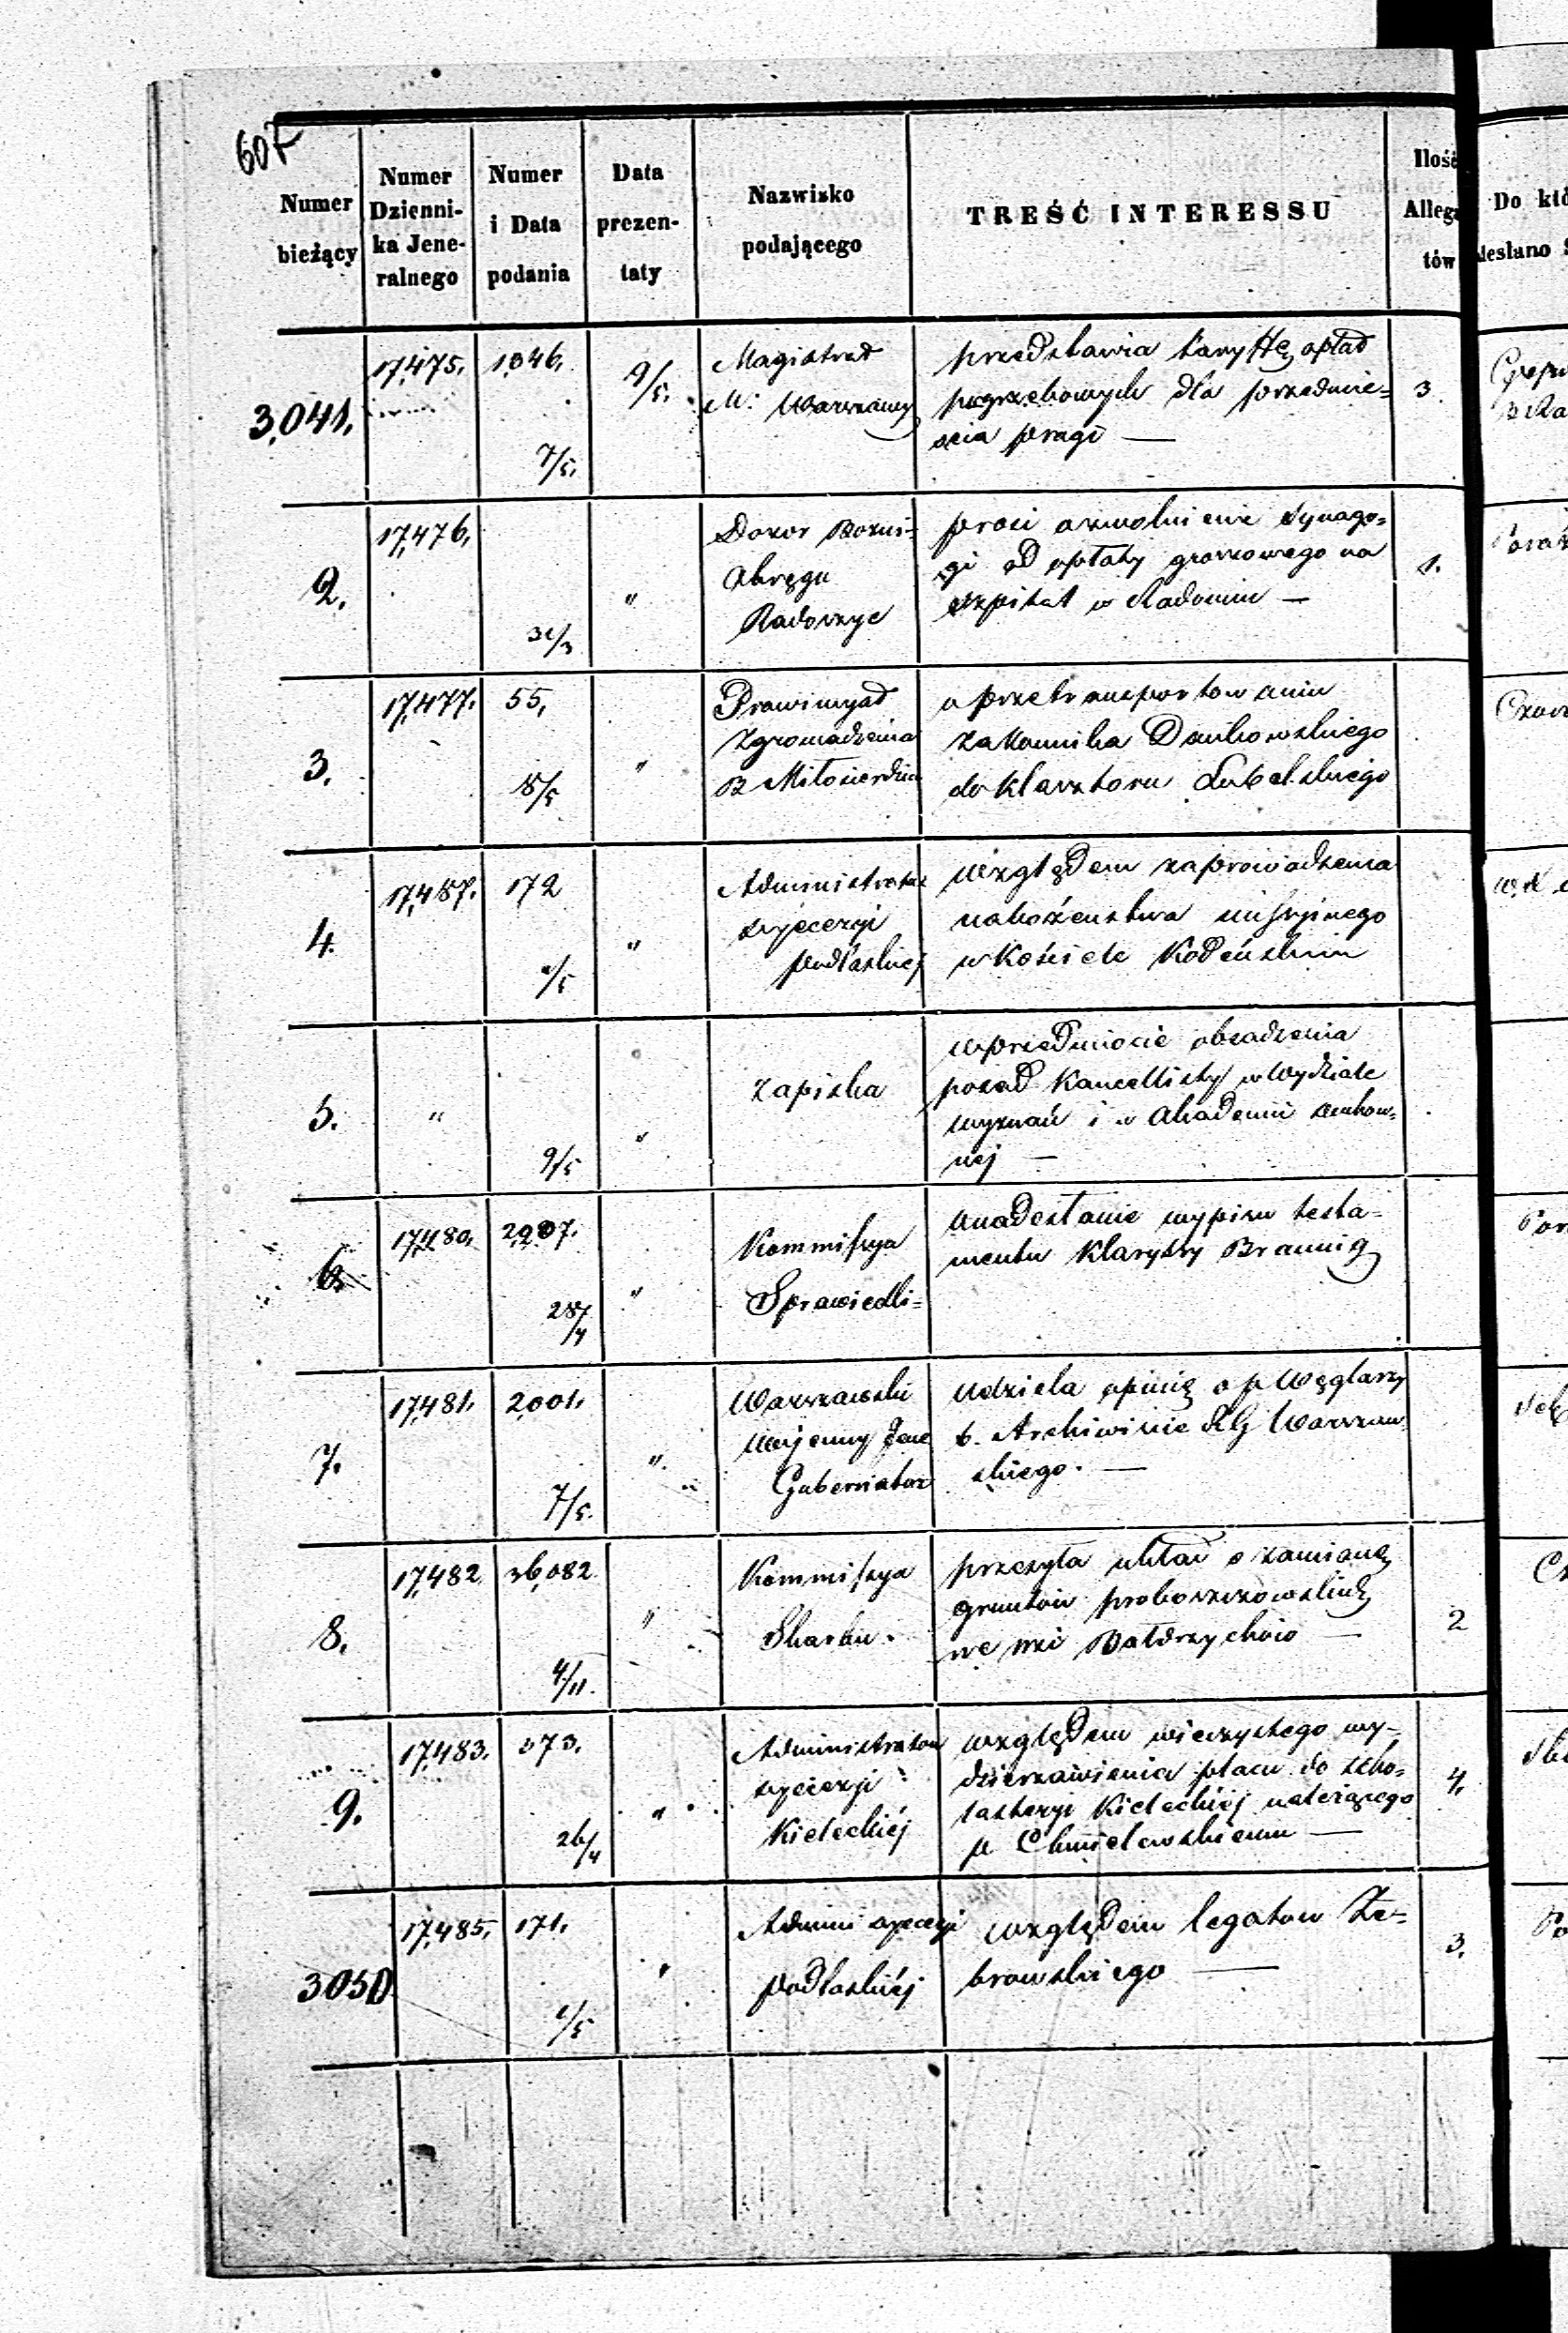 607
Numer bieżący
Numer Dzienni-ka Jene-ralnego
Numer i Data podania
Data prezen-taty
Nazwisko podającego
TREŚĆ INTERESSU
Ilość Allega tów
Do któ
desłano
3,041.
17,475.
1,846.
7/5.
9/5.
Magistrat
M. Warszawy
przedstawia taryffę opłat
pogrzebowych dla przedmie=
ścia pragi —
3.
2.
17,476.
31/3
"
Dozor Bożni=
Okręgu
Radoszyc
prosi o uwolnienie Synago=
gi od opłaty groszowego na
szpital w Radomiu —
1.
3.
17,477.
55,
8/5
"
Prowincyał
Zgromadzenia
B Miłosierdzia
o przetransportowaniu
zakonnika Dankowskiego
do klasztoru Lubelskiego
4.
17,457.
172
"
Administrator
dyecezyi
podlaskiej
względem zaprowadzenia
nabożeństwa missyjnego
w Kościele Kodeńskim
5.
"
9/5
"
Zapiska
w przedmiocie obsadzenia
posad Kancellisty w Wydziale
wyznań i w Akademii duchow=
nej —
6.
17,480.
2,907.
28/4
"
Kommissya
Sprawiedli=
o nadesłanie wypisu testa=
mentu Klaryssy Braunig
7.
17,481.
2,001.
7/5.
"
Warszawski
Wojenny Jene
Gubernator
udziela opinię o p Węglarz
b. Archiwiście RG Warszaw
skiego. —
8.
17,482
36,082
4/11.
"
Kommissya
Skarbu.
przesyła układ o zamianę
gruntów proboszczowskich
we wsi Bałdrzychów —
2
9.
17,483.
373.
26/4
"
Administrator
dyecezji
Kieleckiéj
względem wieczystego wy=
dzierżawienia placu do scho=
lasteryi Kieleckiéj należącego
p Chmielewskiemu —
4.
3050
17,485.
171.
1/5
"
Admini dyecezyi
podlaskiéj
względem legatow Że=
browskiego —
3.